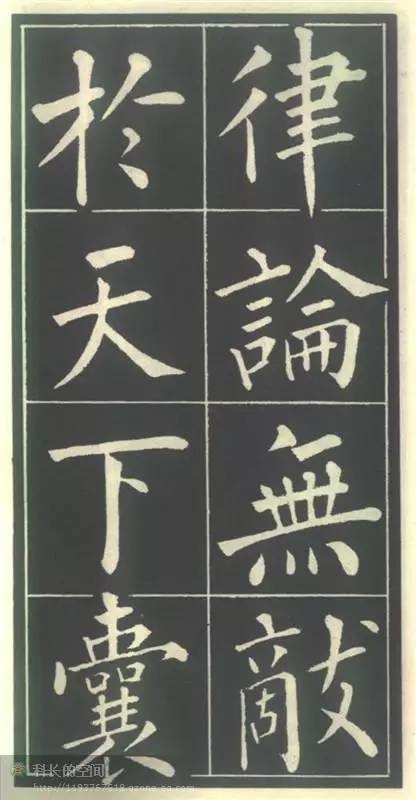 律論無敵
於天下囊
科长的空间
http://1193767818.qzone.qq.com